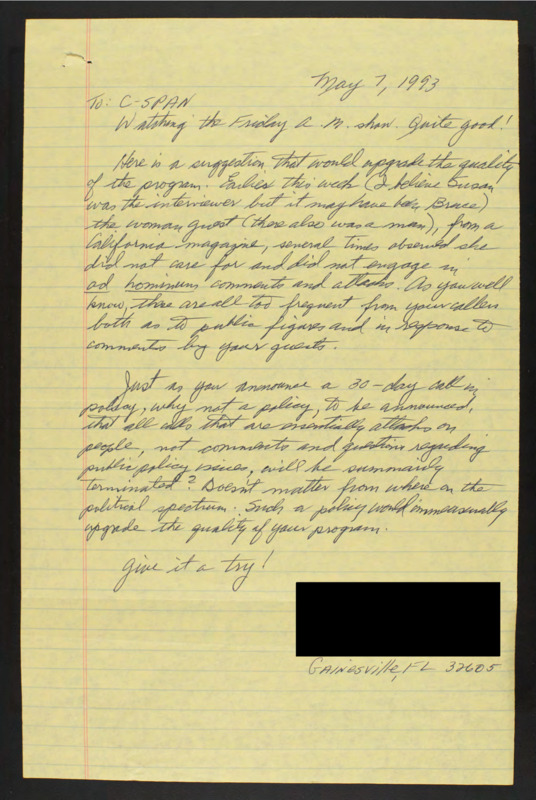 May 7, 1993
To: C-SPAN
Watching the Friday a.m. show. Quite good!
Here is a suggestion that would upgrade the quality
of the program. Earlier this week (I believe Susan
was the interviewer but it may have been Bruce)
the woman guest (there also was a man), from a
California magazine, several times observed she
did not care for and did not engage in
ad hominums comments and attacks. As you well
know, these are all too frequent from your callers
both as to public figures and in response to
comments by your guests.
Just as you announce a 30-day call in
policy, why not a policy, to be announced,
that all calls that are essentially attacks on
people, not comments and questions regarding
public policy issues, will be summarily
terminated? Doesn't matter from where on the
political spectrum. Such a policy would immeasurably
upgrade the quality of your program.
Give it a try!
Gainesville, FL 32605